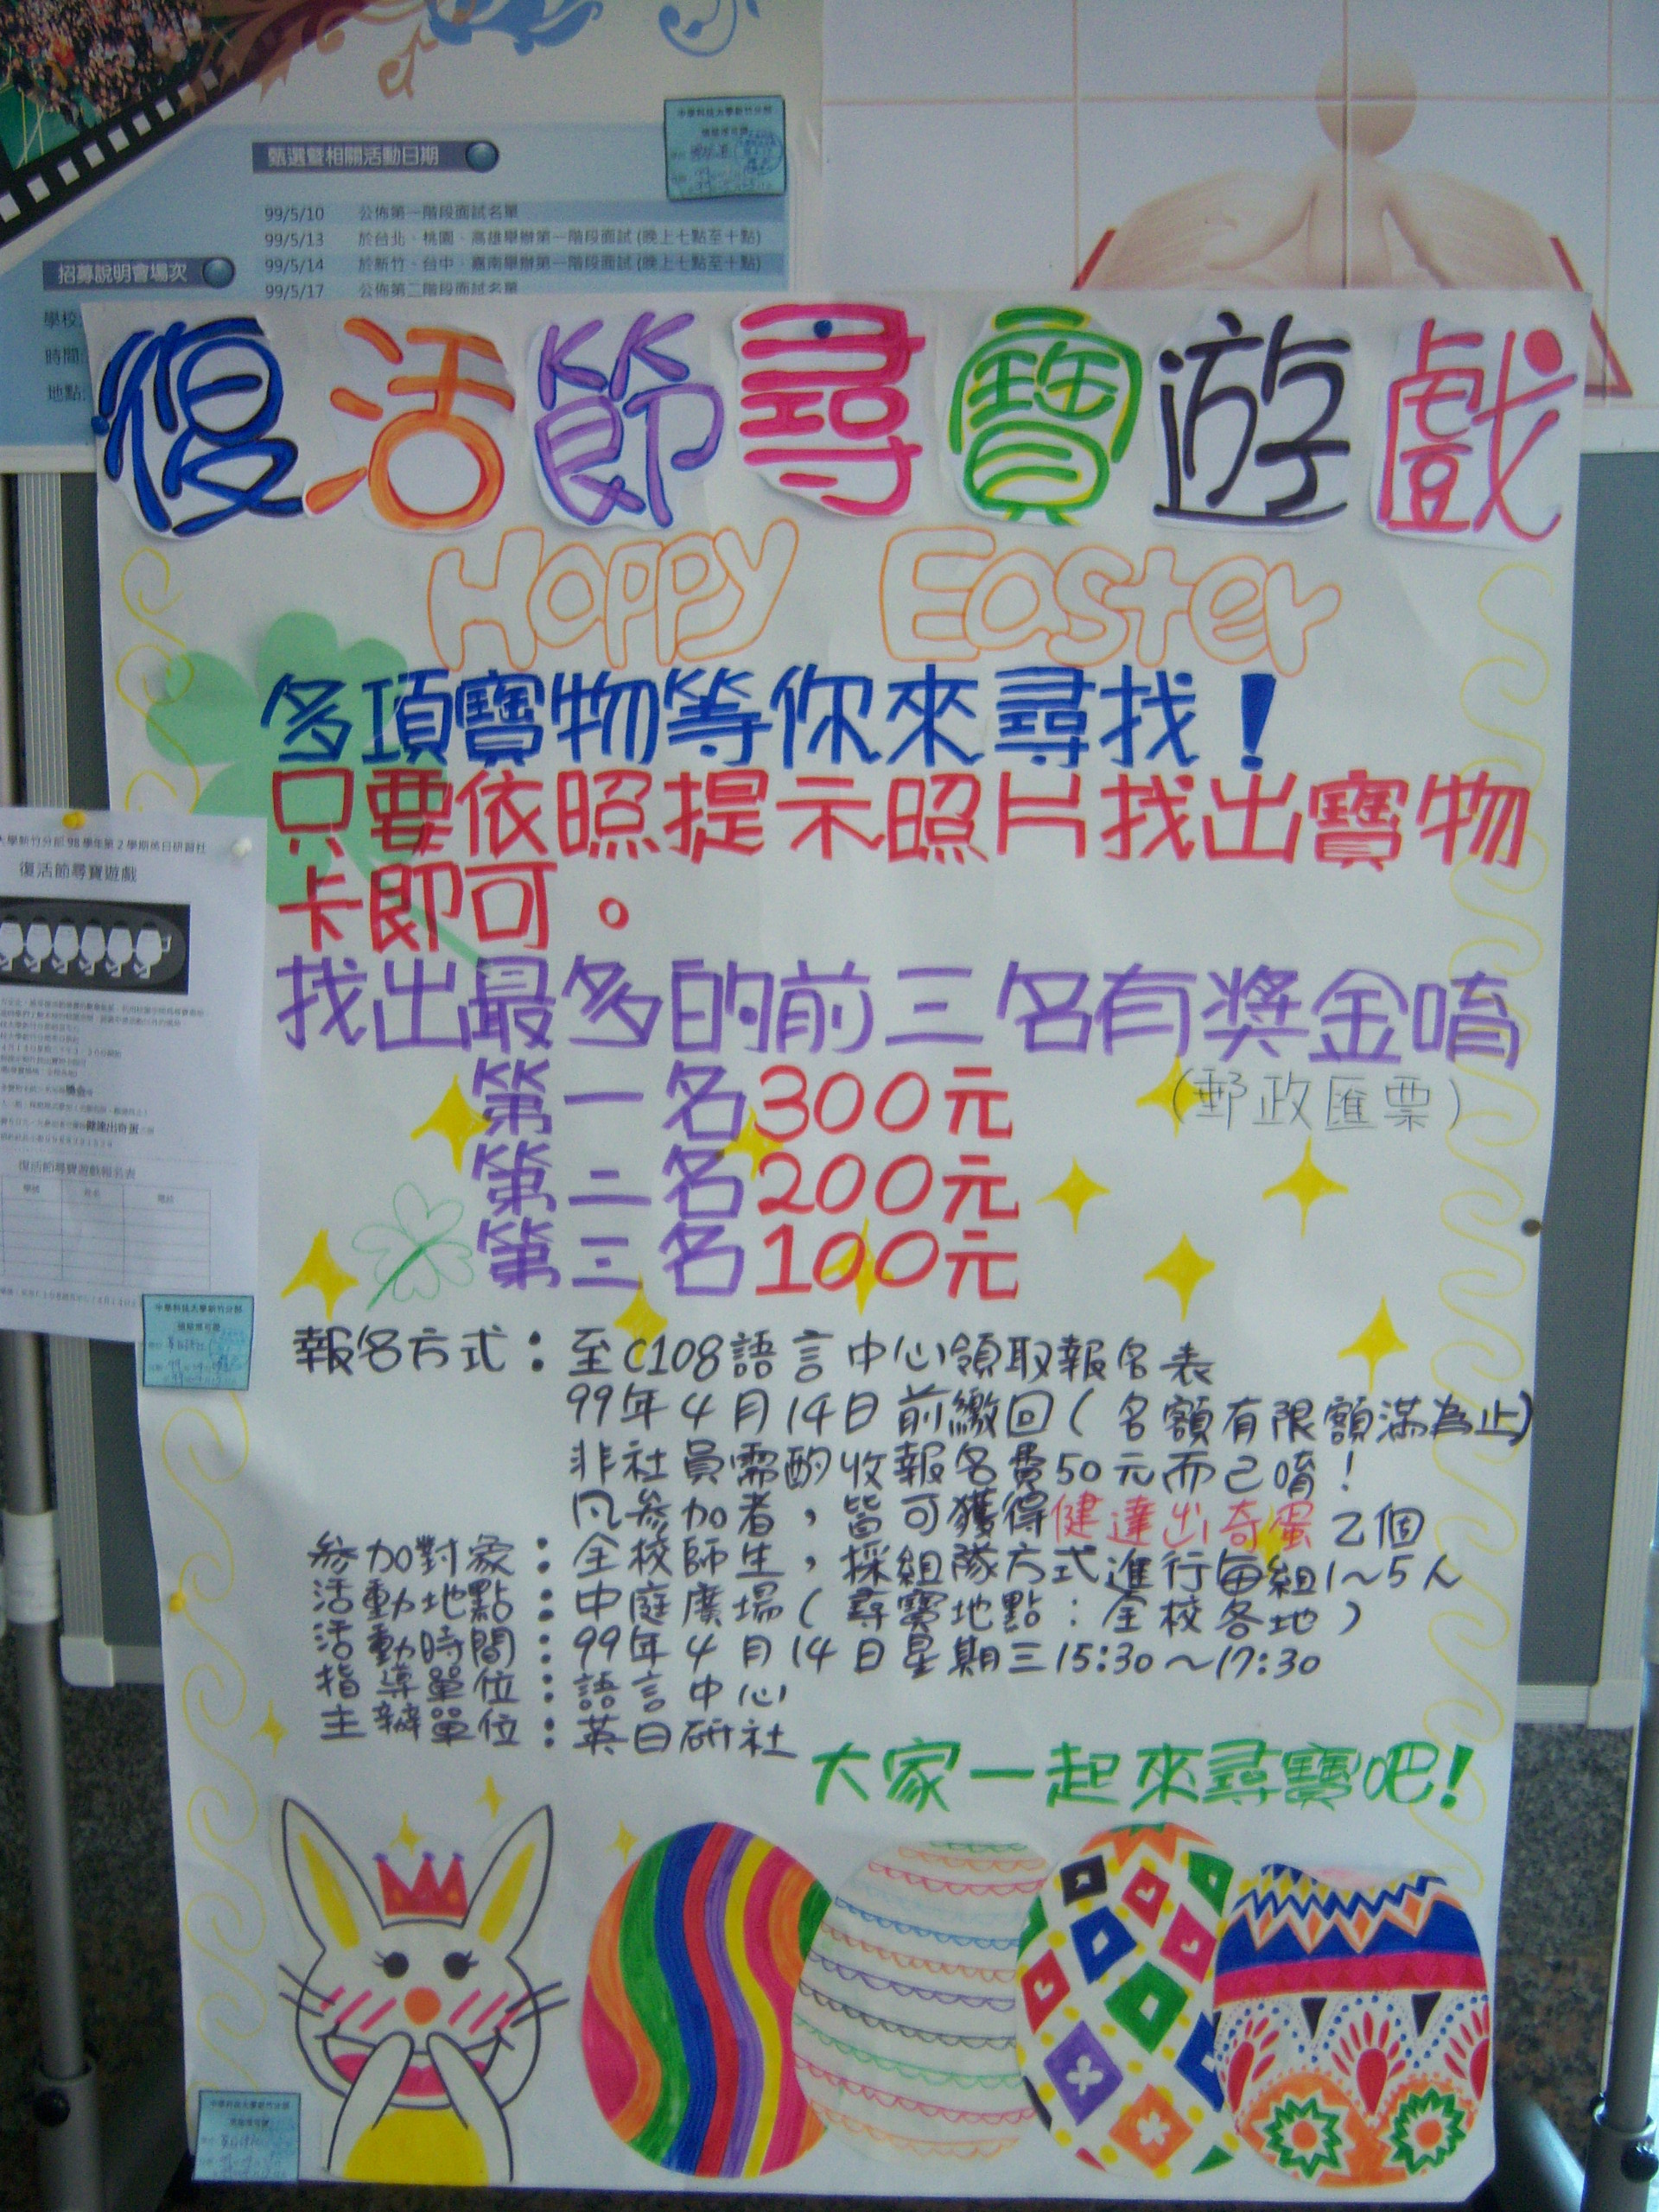 甄選暨相關活動日期
99/5/10 公佈第一階段面試名單
99/5/13 於台北、桃園、高雄舉辦第一階段面試(晚上七點至十點)
99/5/14 於新竹、台中、嘉南舉辦第一階段面試(晚上七點至十點)
99/5/17 公佈第二階段面試名單
招募說明會場次
學校
時間
地點
中華科技大學新竹分部
復活節尋寶遊戲
Happy Easter
多項寶物等你來尋找！
只要依照提示照片找出寶物
卡即可。
找出最多的前三名有獎金唷
第一名300元 (郵政匯票)
第二名200元
第三名100元
報名方式：至C108語言中心領取報名表
99年4月14日前繳回(名額有限額滿為止)
非社員需酌收報名費50元而已唷！
凡參加者，皆可獲得健達出奇蛋乙個
參加對象：全校師生，採組隊方式進行每組1~5人
活動地點：中庭廣場(尋寶地點：全校各地)
活動時間：99年4月14日星期三15:30~17:30
指導單位：語言中心
主辦單位：英日研社
大家一起來尋寶吧！
大學新竹分部98學年第2學期英日研習社
復活節尋寶遊戲
復活節尋寶遊戲報名表
學號 姓名 電話
中華科技大學新竹分部
中華科技大學新竹分部